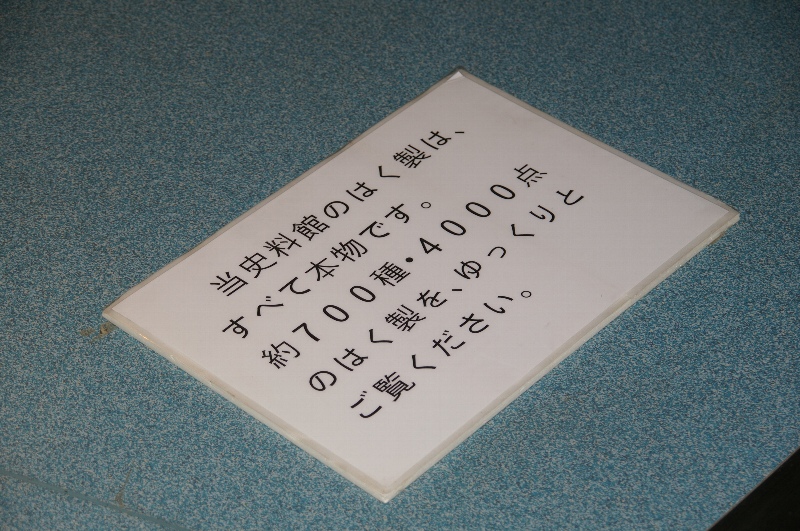 当史料館のはく製は、
すべて本物です。
約７００種・４０００点
のはく製を、ゆっくりと
ご覧ください。